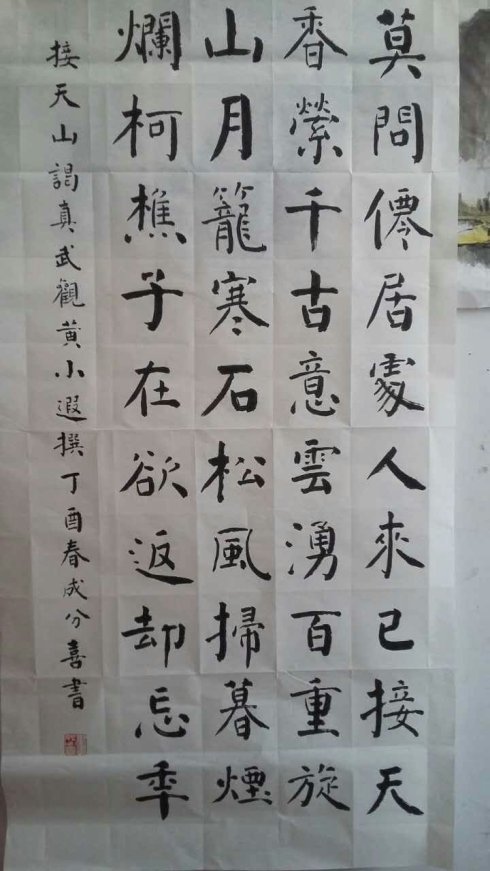 莫問僊居處人來已接天
香縈千古意雲湧百重旋
山月籠寒石松風掃暮煙
爛柯樵子在欲返却忘秊
接天山謁真武觀黄小遐撰丁酉春成分喜書